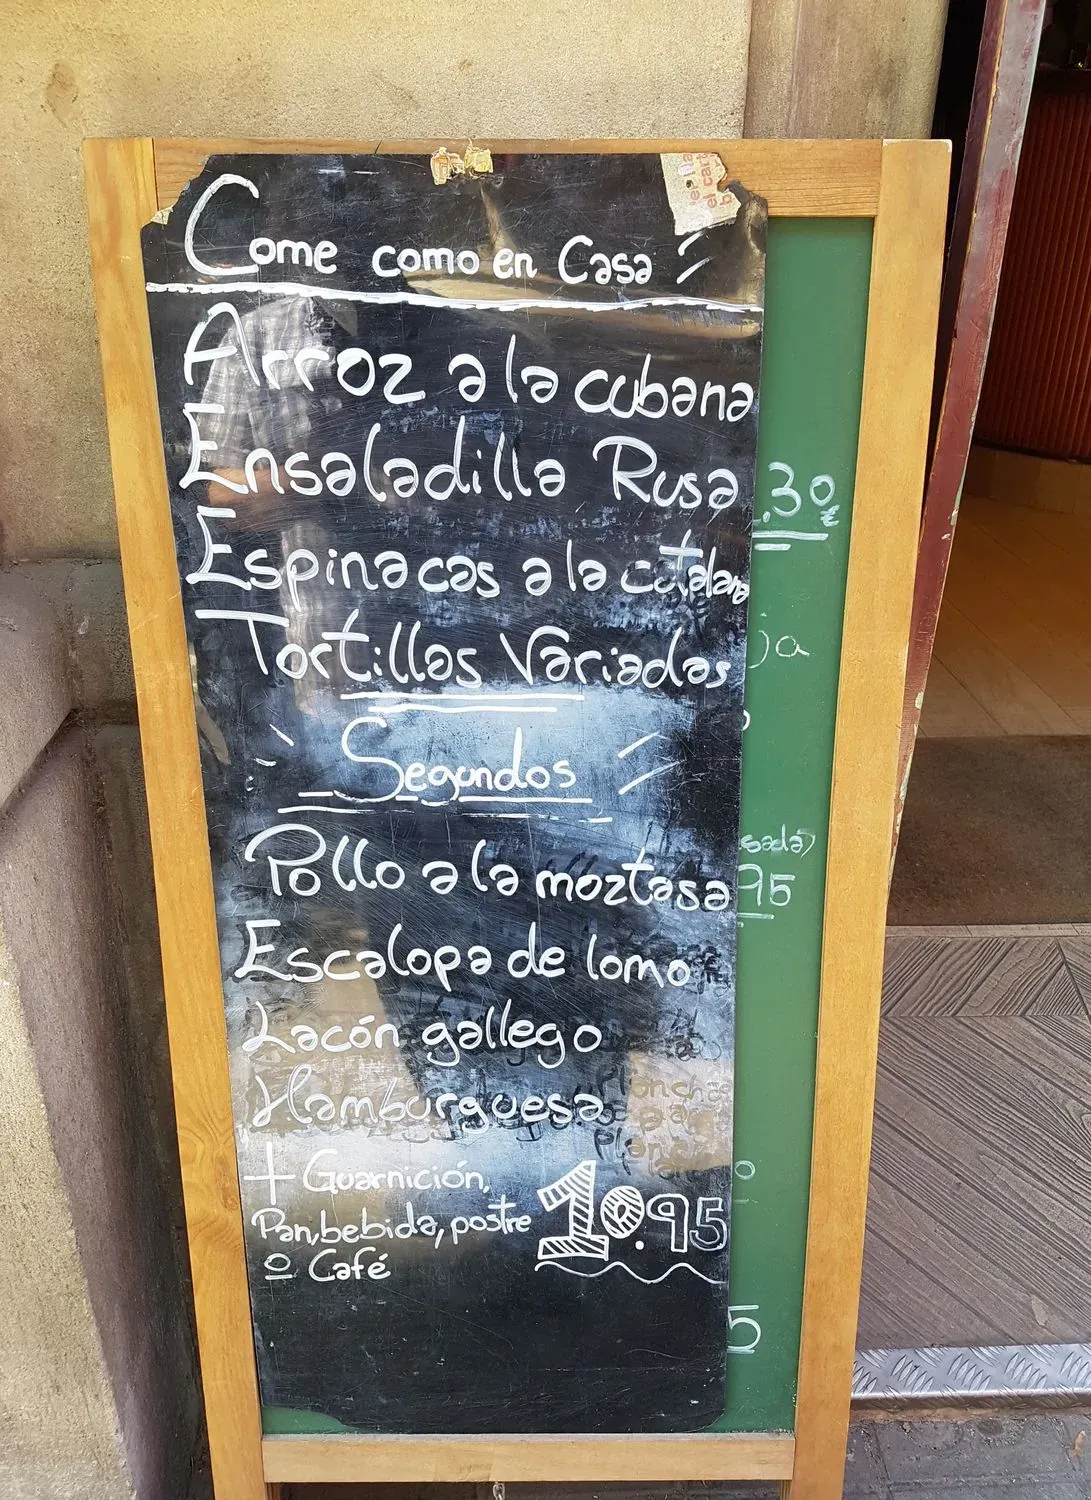 Come como en Casa
Arroz a la cubana
Ensaladilla Rusa
Espinacas a la catalana
Tortillas Variadas
Segundos
Pollo a la moztasa
Escalopa de lomo
Lacón gallego
Hamburguesa
+ Guarnición,
Pan, bebida, postre
o Café
10.95
.30
€
ja
sada)
95
5
el car